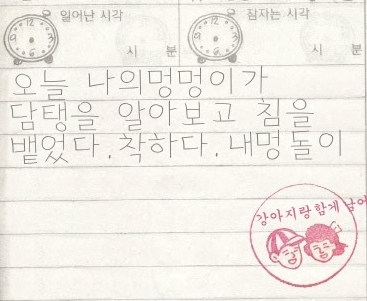 일어난 시각 잠자는 시각
시 분 시 분
오늘 나의멍멍이가
담탱을 알아보고 침을
뱉었다. 착하다. 내멍돌이
강아지랑함께